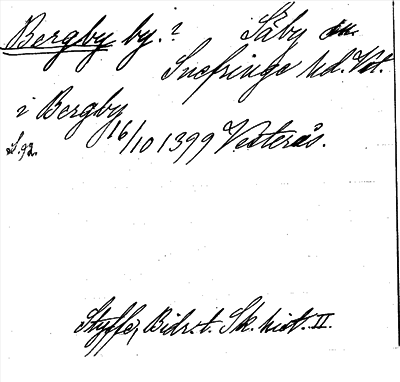 Bergby by. ? Säby sn.
Snefringe hd. Vst.
i Bergby
16/10 1399 Vesterås.
S. 92.
Styffe, Bidr. t. Sk. hist. II.